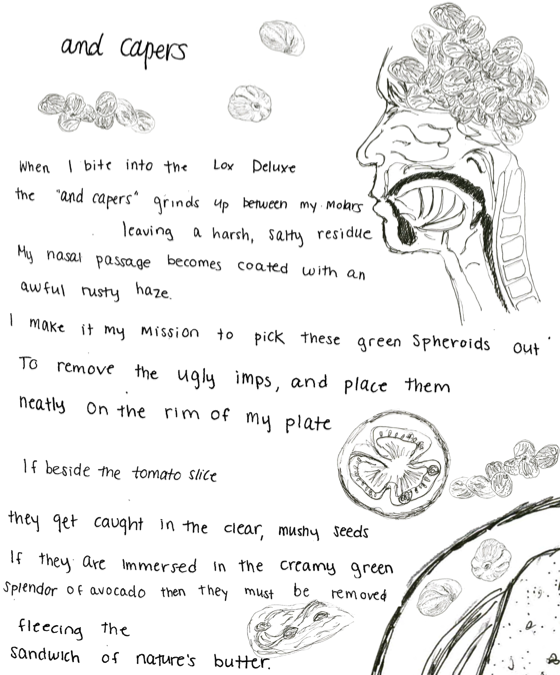 and capers
When I bite into the Lox Deluxe
the "and capers" grinds up between my molars
leaving a harsh, salty residue
My nasal passage becomes coated with an
awful rusty haze.
I make it my mission to pick these green spheroids out
To remove the ugly imps, and place them
neatly on the rim of my plate
If beside the tomato slice
they get caught in the clear, mushy seeds
If they are immersed in the creamy green
splendor of avocado then they must be removed
fleecing the
sandwich of nature's butter.